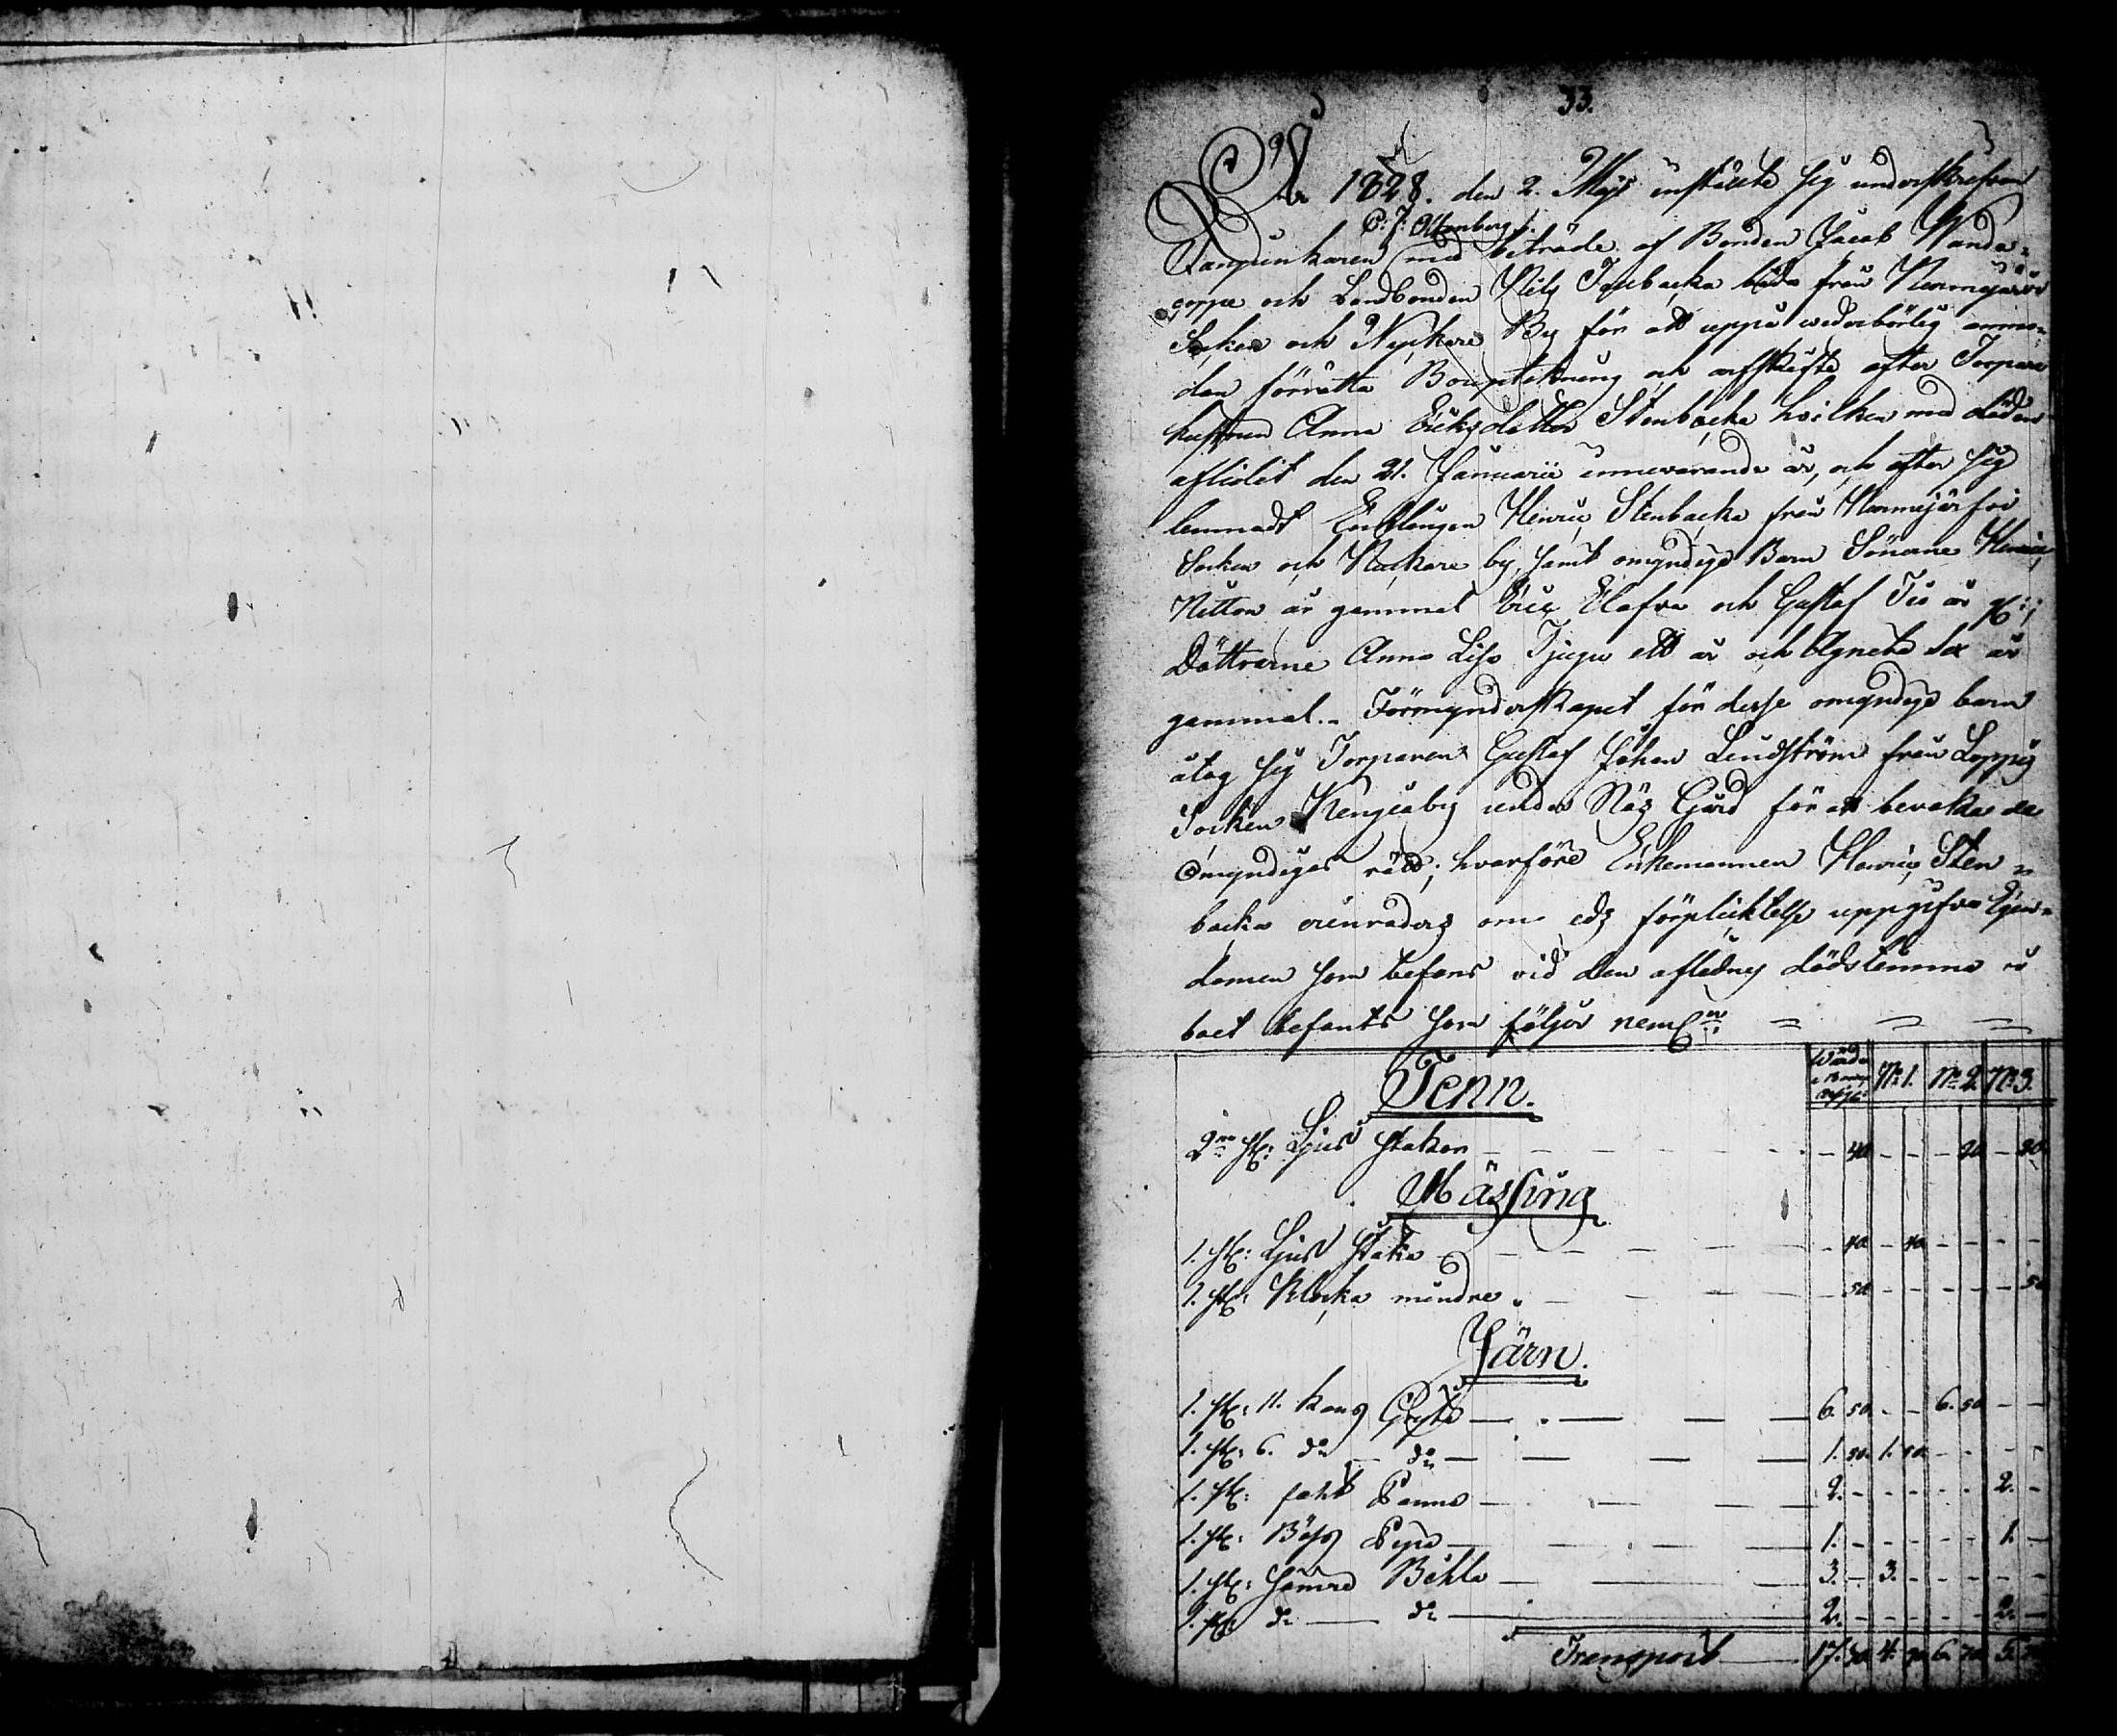 33.
År 1828. den 2. Maji instälte sig undertecknad
C: J: Altenberg
med biträde af Bonden Jacob Wanda-
och Landbonden Nils Isobacka båda från Nurmijärvi
Socken och Nuckare By för att uppå vederbörlig anmo-
dan förrätta Bouptekning och arfskifte efter Torpare
hustrun Anna Ericsdotter Stenbacka hvilken med döden
aflidit den 21. Januarii innevarande år, och efter sig
lemnadt Enklingen Henric Stenbacka från Nurmijärfvi
Socken och Nuckare by, samt omyndige Barn Sönerne Henric
Nitton år gammal Eric Elofva och Gustaf Tio år g:l;
Döttrarne Anna Lisa Tjugu ett år och Agneta sex år
gammal.- Förmynderskapet för desse omyndige barn
åtog sig Torparen Gustaf Johan Lindström från Loppis
Socken under Näs Gård för att bevaka de
Omyndiges rätt; hvarföre Enkemannen Henric Sten-
backa om eds förplicktelse uppgifva Egen-
domen som befans vid den aflednes dödstimma i
boet befants som följer neml:n
Tenn.
N:o 1. N:o 2. N:o 3.
2:ne st: Ljus stakar - 40 - - - 20 - 20
Mässing
1. st: Ljus staka - 40 - 40 - - - -
1. st: Klocka mindre - 50 - - - - - 50
Järn.
1. st: 11. kans Gryta 6. 50 - - 6. 50 - -
1. st: 6. d:o d:o 1. 50. 1. 50. - - - -
1. st: Panna 2. - - - - - 2. -
1. st: Böss Pipa 1. - - - - - 1. -
1. st: Bihla 3. - 3. - - - - -
1. st: d:o d:o 2. - - - - - 2. -
Transport 17. 30 4. 90 6. 70 5.